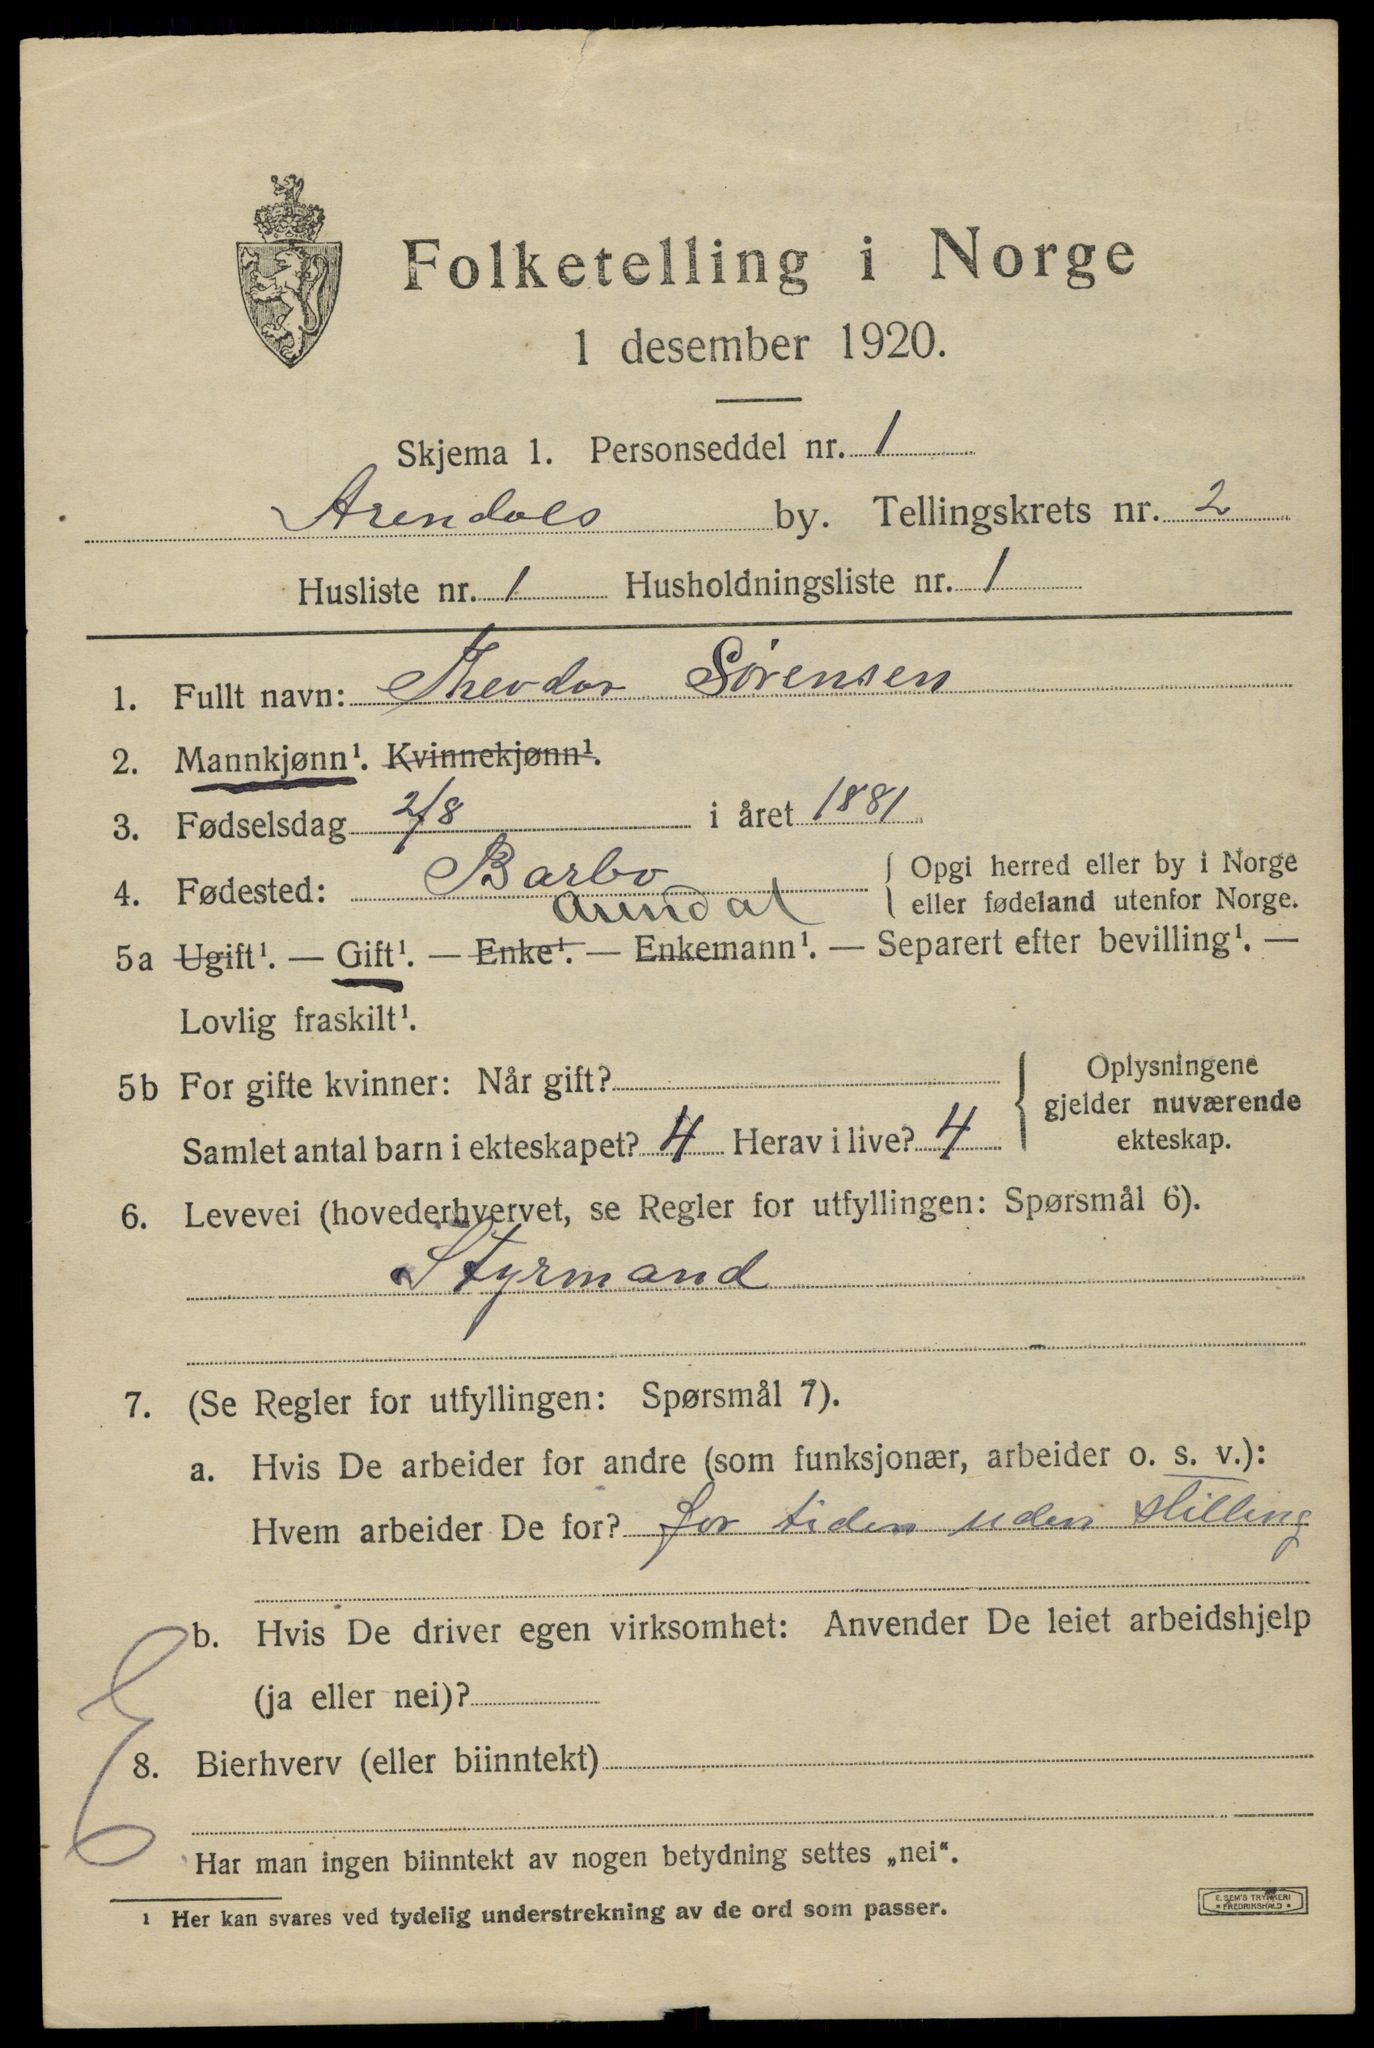 Folketelling i Norge
1 desember 1920.
Skjema 1. Personseddel nr. 1
Arendals by. Tellingskrets nr. 2
Husliste nr. 1 Husholdningsliste nr. 1
1. Fullt navn: Theodor Sørensen
2. Mannkjønn¹. Kvinnekjønn¹.
3. Fødselsdag 2/8 i året 1881
4. Fødested: Barbo { Opgi herred eller by i Norge
Arendal eller fødeland utenfor Norge.
5a Ugift¹. — Gift¹. — Enke¹. — Enkemann¹. — Separert efter bevilling¹. —
Lovlig fraskilt¹.
5b For gifte kvinner: Når gift? { Oplysningene
gjelder nuværende
Samlet antal barn i ekteskapet? 4 Herav i live? 4 ekteskap.
6. Levevei (hovederhvervet, se Regler for utfyllingen: Spørsmål 6).
Styrmand
7. (Se Regler for utfyllingen: Spørsmål 7).
a. Hvis De arbeider for andre (som funksjonær, arbeider o. s. v.):
Hvem arbeider De for? for tiden uden stilling
b. Hvis De driver egen virksomhet: Anvender De leiet arbeidshjelp
(ja eller nei)?
8. Bierhverv (eller biinntekt)
Har man ingen biinntekt av nogen betydning settes „nei“.
¹ Her kan svares ved tydelig understrekning av de ord som passer.
E. SEM'S TRYKKERI
* FREDRIKSHALD *